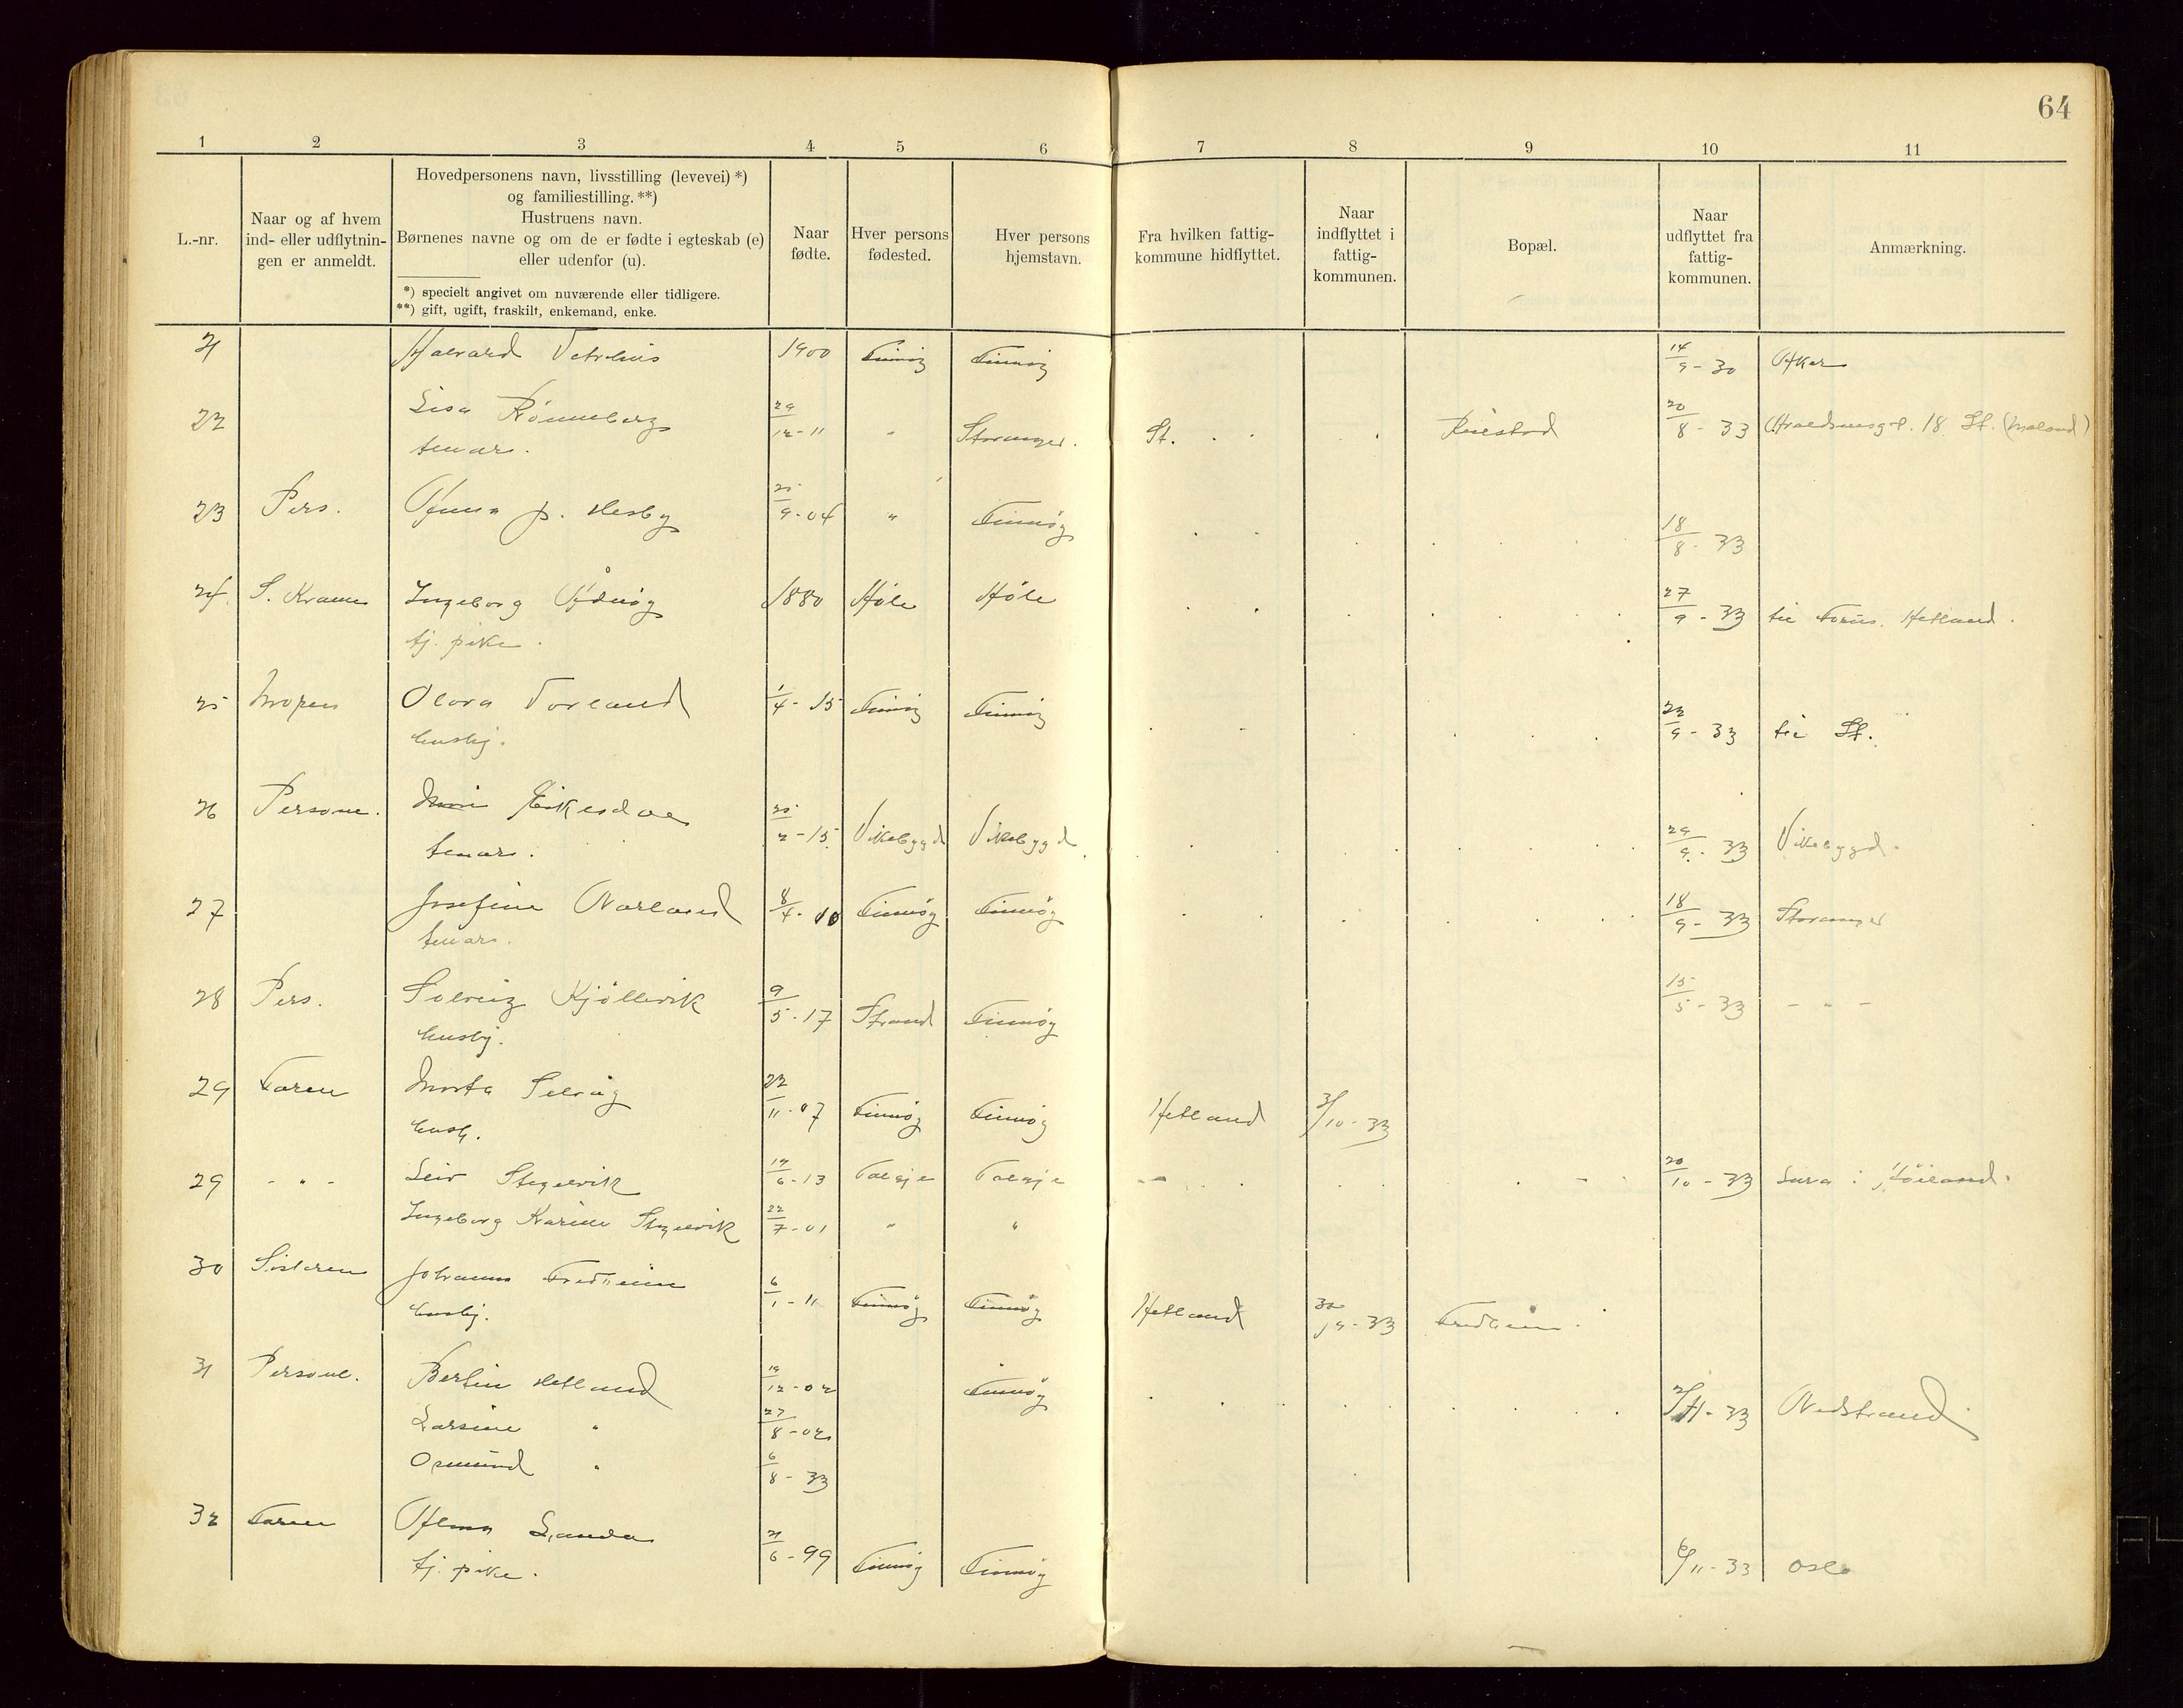 64
1 2 3 4 5 6 7 8 9 10 11
L.-nr.
Naar og af hvem
ind- eller udflytnin-
gen er anmeldt.
Hovedpersonens navn, livsstilling (levevei) *)
og familiestilling. **)
Hustruens navn.
Børnenes navne og om de er fødte i egteskab (e)
eller udenfor (u).
*) specielt angivet om nuværende eller tidligere.
**) gift, ugift, fraskilt, enkemand, enke.
Naar
fødte.
Hver persons
fødested.
Hver persons
hjemstavn.
Fra hvilken fattig-
kommune hidflyttet.
Naar
indflyttet i
fattig-
kommunen.
Bopæl.
Naar
udflyttet fra
fattig-
kommunen.
Anmærkning.
21 Halvard Vetrhus 1900 Finnøy Finnøy 14/9-30 Aker
22 Lisa Rønneberg 29/12-11 " Stavanger. St. 20/8-33 18 St. (Moland)
tenar.
23 Pers. Anna J. Hesby 25/9-04 " Finnøy 18/8-33
24 S. Ingeborg Ådnøy 1880 Høle Høle 27/9-33 til Forus. Hetland.
tj. pike.
25 Moren Olava Vorland 1/4-15 Finnøy Finnøy 22/9-33 til St.
husbj.
26 Persone. Eikesdal 25/2-15 Vikebygd Vikebygd 29/9-33 Vikebygd.
tenar.
27 Josefine Narland 8/4-10 Finnøy Finnøy 18/9-33 Stavanger
tenar.
28 Pers. Solveig Kjøllevik 9/5-17 Strand Finnøy 15/5-33 - " -
husbj.
29 Faren Marta Selvåg 22/11-07 Finnøy Finnøy Hetland 3/10-33
husb.
29 - " - Leiv Stegelvik 12/6-13 Talgje Talgje - " 20/10-33 Lura i Høiland.
Ingeborg Karine Stegelvik 22/7-01 " "
30 Sisteren Johanna Fredheim 6/1-11 Finnøy Finnøy Hetland 30/10-33 Fredheim.
husbj.
31 Persone. Bertin Hetland 19/12-02 Finnøy 2/11-33 Nedstrand
Larsine " 27/8-02
Osmund " 6/8-33
32 Faren Alma Landa 21/6-99 Finnøy Finnøy 6/11-33 Oslo
tj. pike.